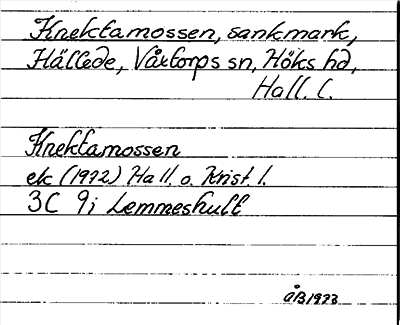 Knektamossen, sankmark,
Hällede, Våxtorps sn, Höks hd,
Hall. l.
Knektamossen
ek (1972) Hall. o. Krist. l.
3C 9i Lemmeshult
ÅB 1973